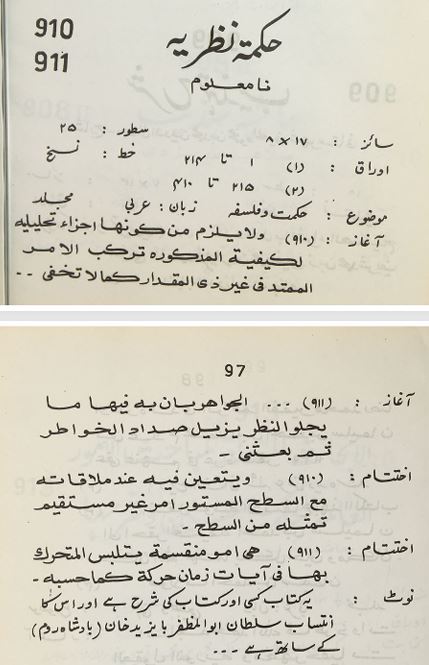 910
911
حکمۃ نظریہ
نامعلوم
سائز : ۱۷ × ۸ سطور : ۲۵
اوراق : (۱) ۱ تا ۲۱۴ خط : نسخ
(۲) ۲۱۵ تا ۴۱۰
موضوع : حکمت و فلسفہ زبان : عربی مجلد
آغاز : (۹۱۰) ولا یلزم من کونھا اجزاء تحلیلیہ
لکیفیة المذکورہ ترکب الامر
الممتد فی غیر ذی المقدار کما لا تخفی --
97
آغاز : (۹۱۱) ... الجواھر بان بہ فیھا ما
یجلو النظر یزیل صداد الخواطر
ثم بعثنی -
اختتام : (۹۱۰) ویتعین فیہ عند ملاقاتہ
مع السطح المستور امر غیر مستقیم
تمثلہ من السطح -
اختتام : (۹۱۱) ھی امو منقسمة یتلبس المتحرك
بھا فی آیات زمان حرکة کما حسبہ -
نوٹ : یہ کتاب کسی اور کتاب کی شرح ہے اور اس کا
انتساب سلطان ابو المظفر بایزید خان (بادشاہ روم)
کے ساتھ ہے ---